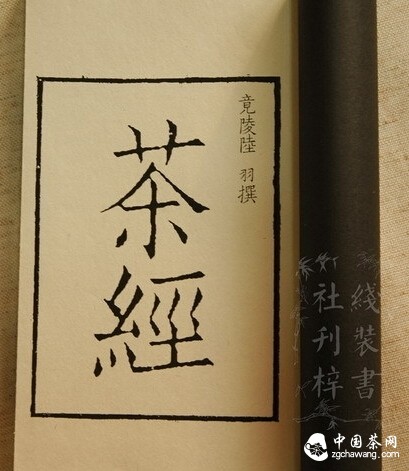 竟陵陸 羽撰
茶經
綫装書
社刊梓
中国茶网
zgchawang.com